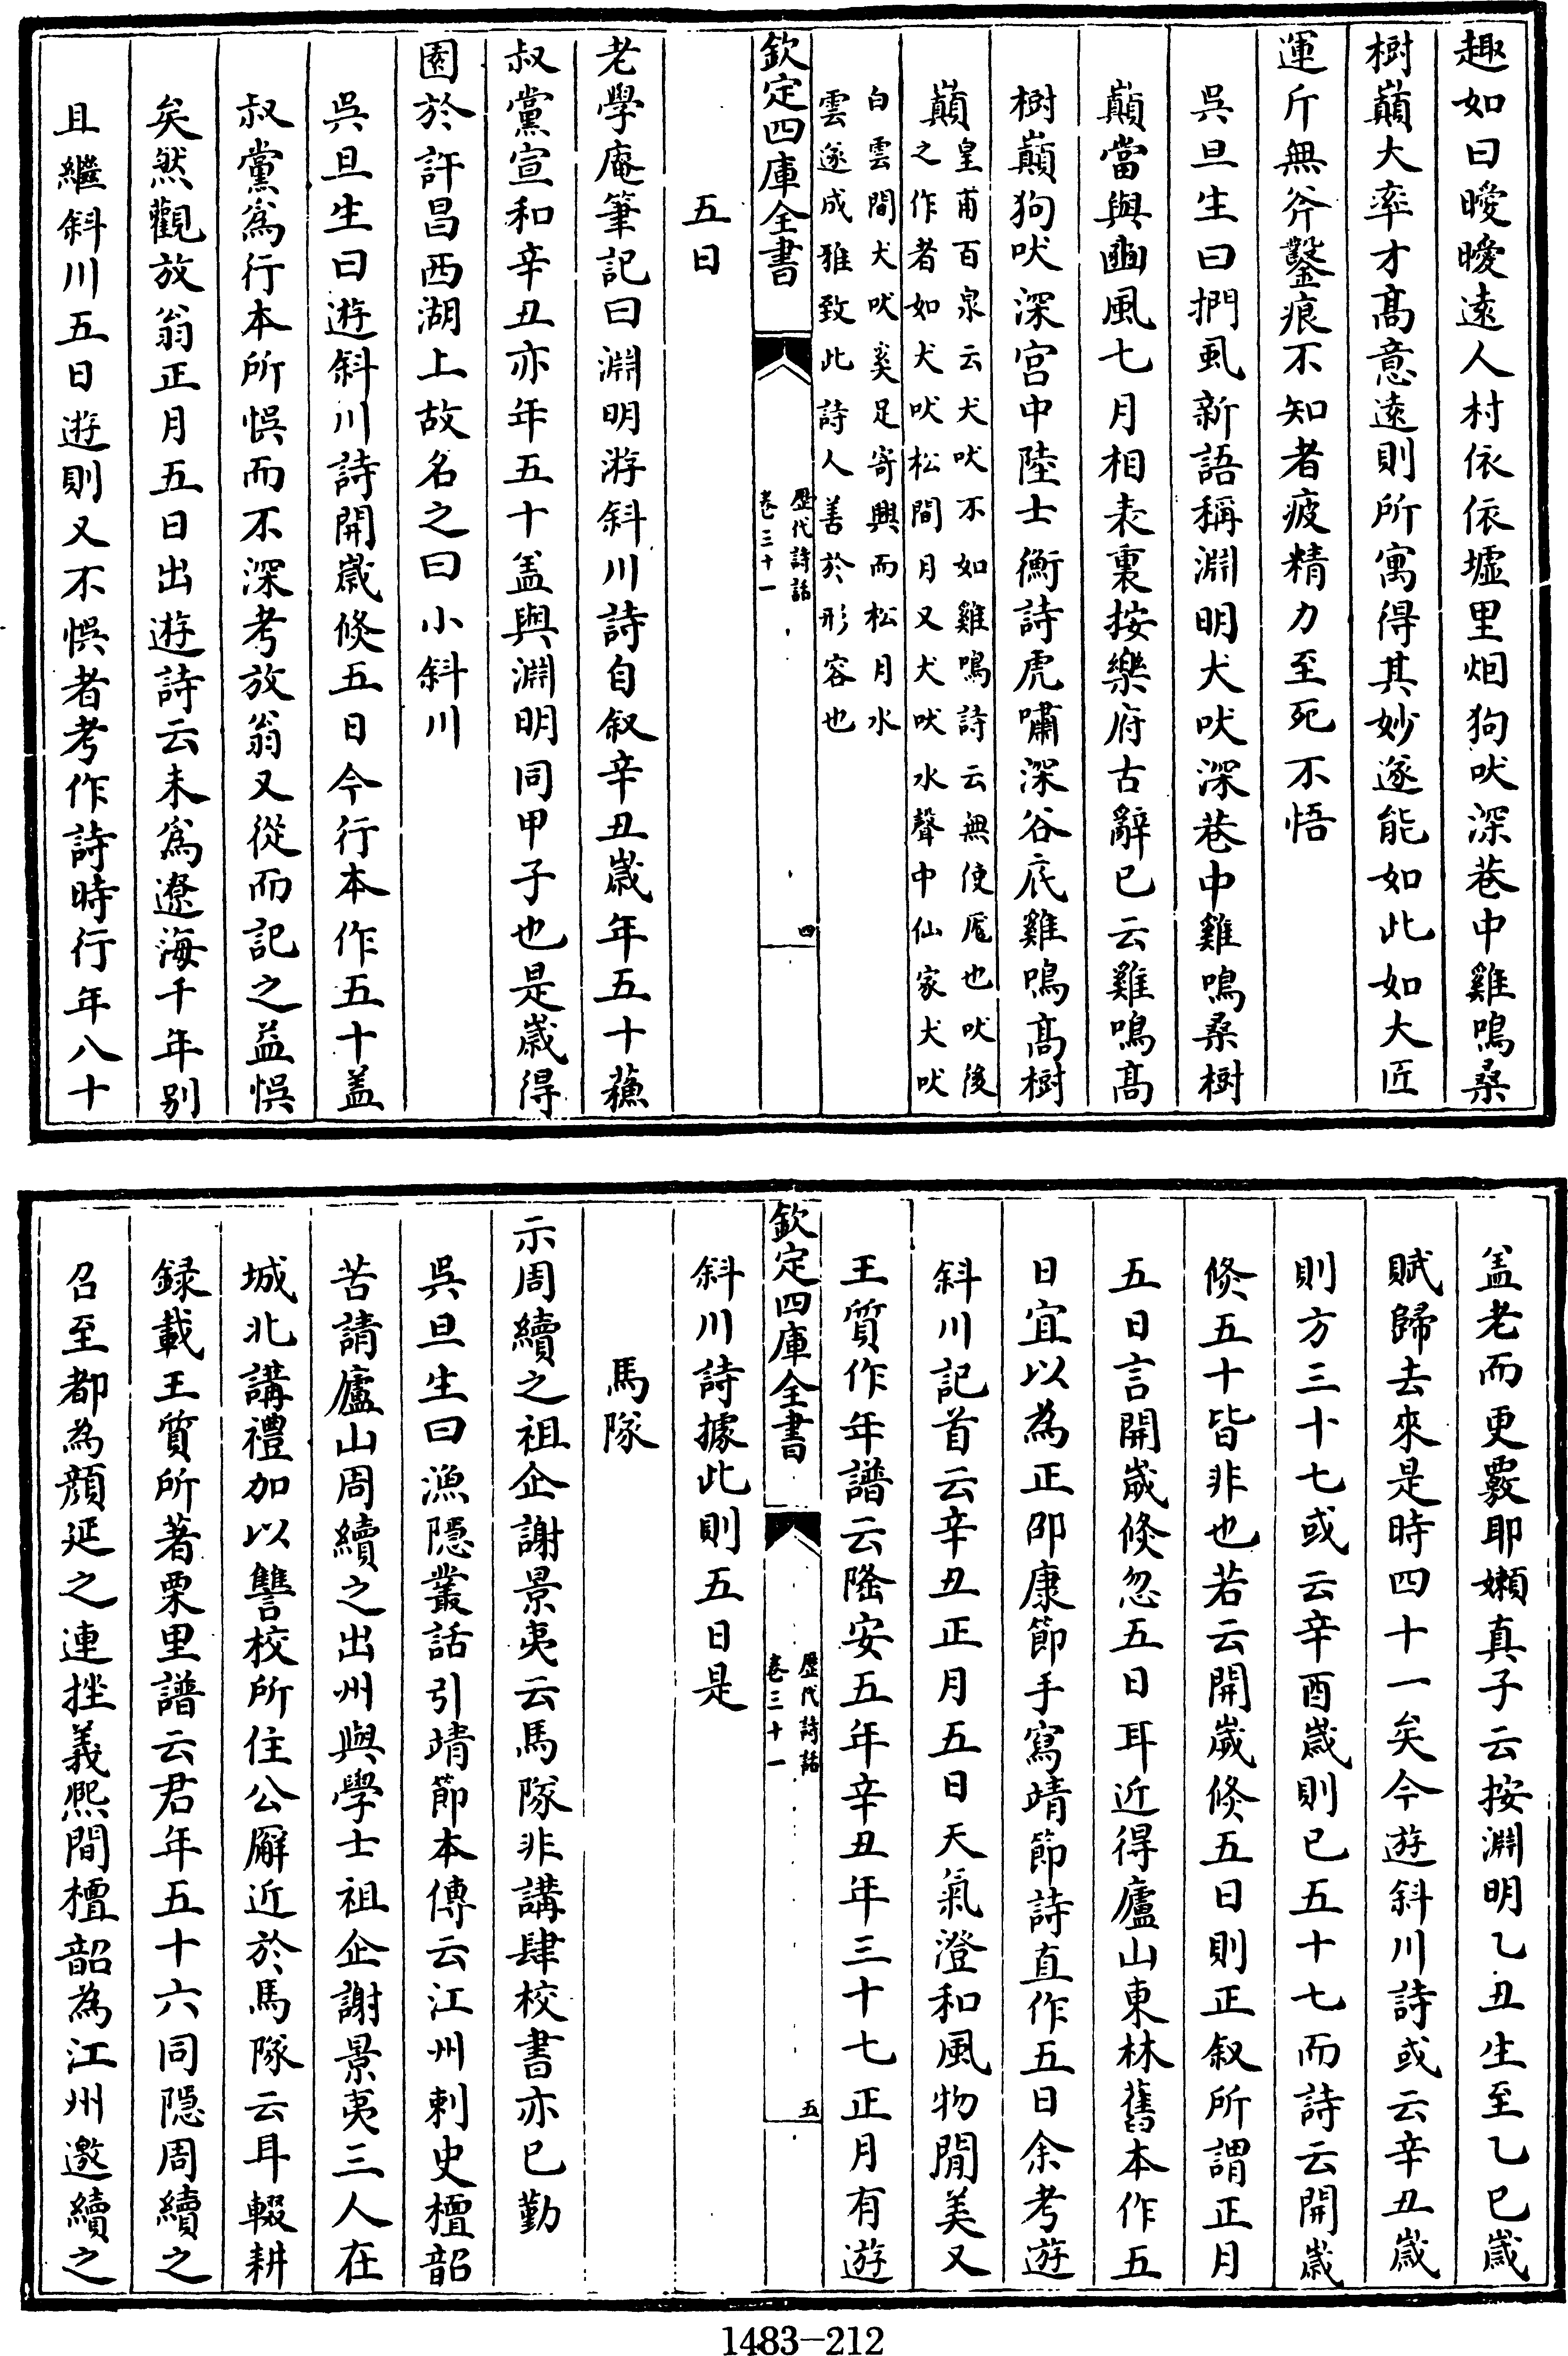 趣如曰曖曖遠人村依依墟里烟狗吠深巷中雞鳴桑
樹巔大率才髙意遠則所寓得其妙遂能如此如大匠
運斤無斧鑿痕不知者疲精力至死不悟
吳旦生曰捫虱新語稱淵明犬吠深巷中雞鳴桑樹
巔當與豳風七月相表裏按樂府古辭已云雞鳴髙
樹巔狗吠深宫中陸士衡詩虎嘯深谷底雞鳴髙樹
巔皇甫百泉云犬吠不如雞鳴詩云無使尨也吠後
之作者如犬吠松間月又犬吠水聲中仙家犬吠
白雲間犬吠奚足寄興而松月水
雲遂成雅致此詩人善於形容也
欽定四庫全書
歴代詩話
卷三十一
四
五日
老學庵筆記曰淵明游斜川詩自叙辛丑嵗年五十蘓
叔黨宣和辛丑亦年五十盖與淵明同甲子也是嵗得
園於許昌西湖上故名之曰小斜川
吳旦生曰遊斜川詩開嵗倐五日今行本作五十盖
叔黨為行本所悞而不深考放翁又從而記之益悞
矣然觀放翁正月五日出遊詩云未為遼海千年别
且繼斜川五日遊則又不悞者考作詩時行年八十
盖老而更覈耶嬾真子云按淵明乙丑生至乙巳嵗
賦歸去來是時四十一矣今遊斜川詩或云辛丑嵗
則方三十七或云辛酉嵗則已五十七而詩云開嵗
倐五十皆非也若云開嵗倐五日則正叙所謂正月
五日言開嵗倐忽五日耳近得廬山東林舊本作五
日宜以為正邵康節手寫靖節詩直作五日余考遊
斜川記首云辛丑正月五日天氣澄和風物閒美又
王質作年譜云隆安五年辛丑年三十七正月有遊
欽定四庫全書
歴代詩話
卷三十一
五
斜川詩據此則五日是
馬隊
示周續之祖企謝景夷云馬隊非講肆校書亦已勤
吳旦生曰漁隱叢話引靖節本傳云江州刺史檀韶
苦請廬山周續之出州與學士祖企謝景夷三人在
城北講禮加以讐校所住公廨近於馬隊云耳輟耕
録載王質所著栗里譜云君年五十六同隱周續之
召至都為顔延之連挫義熙間檀韶為江州邀續之
1483-212